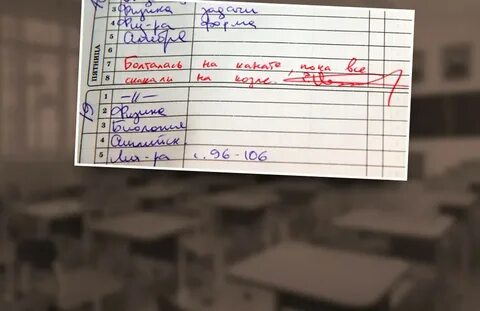 3 Физика задачи
4 Физ-ра форма
5 Алгебра
6
ПЯТНИЦА
7 Болталась на канате, пока все
8 скакали на козле.
1 -//-
2 Физика
3 Биология
4 Английск.
5 Лит-ра с. 96-106